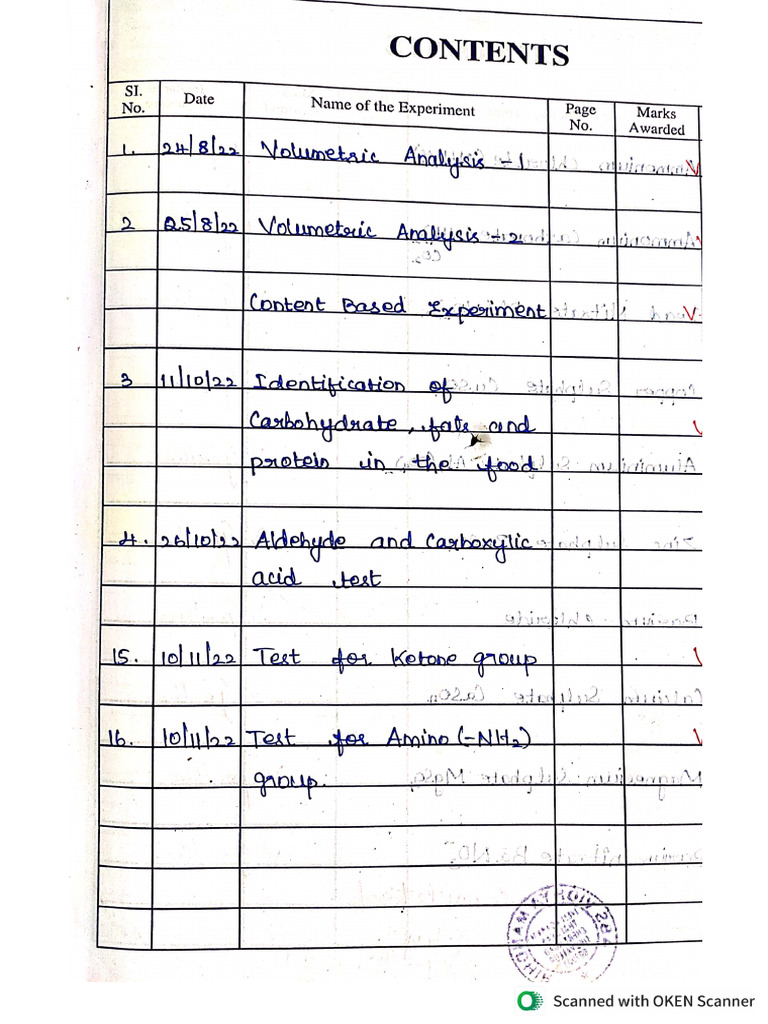 CONTENTS
SI. No. Date Name of the Experiment Page No. Marks Awarded
1. 24/8/22 Volumetric Analysis - 1
2 25/8/22 Volumetric Analysis - 2
Content Based Experiment
3 11/10/22 Identification of
Carbohydrate, fats and
protein in the food
4. 26/10/22 Aldehyde and Carboxylic
acid test
15. 10/11/22 Test for Ketone group
16. 10/11/22 Test for Amino (-NH₂)
group.
Scanned with OKEN Scanner